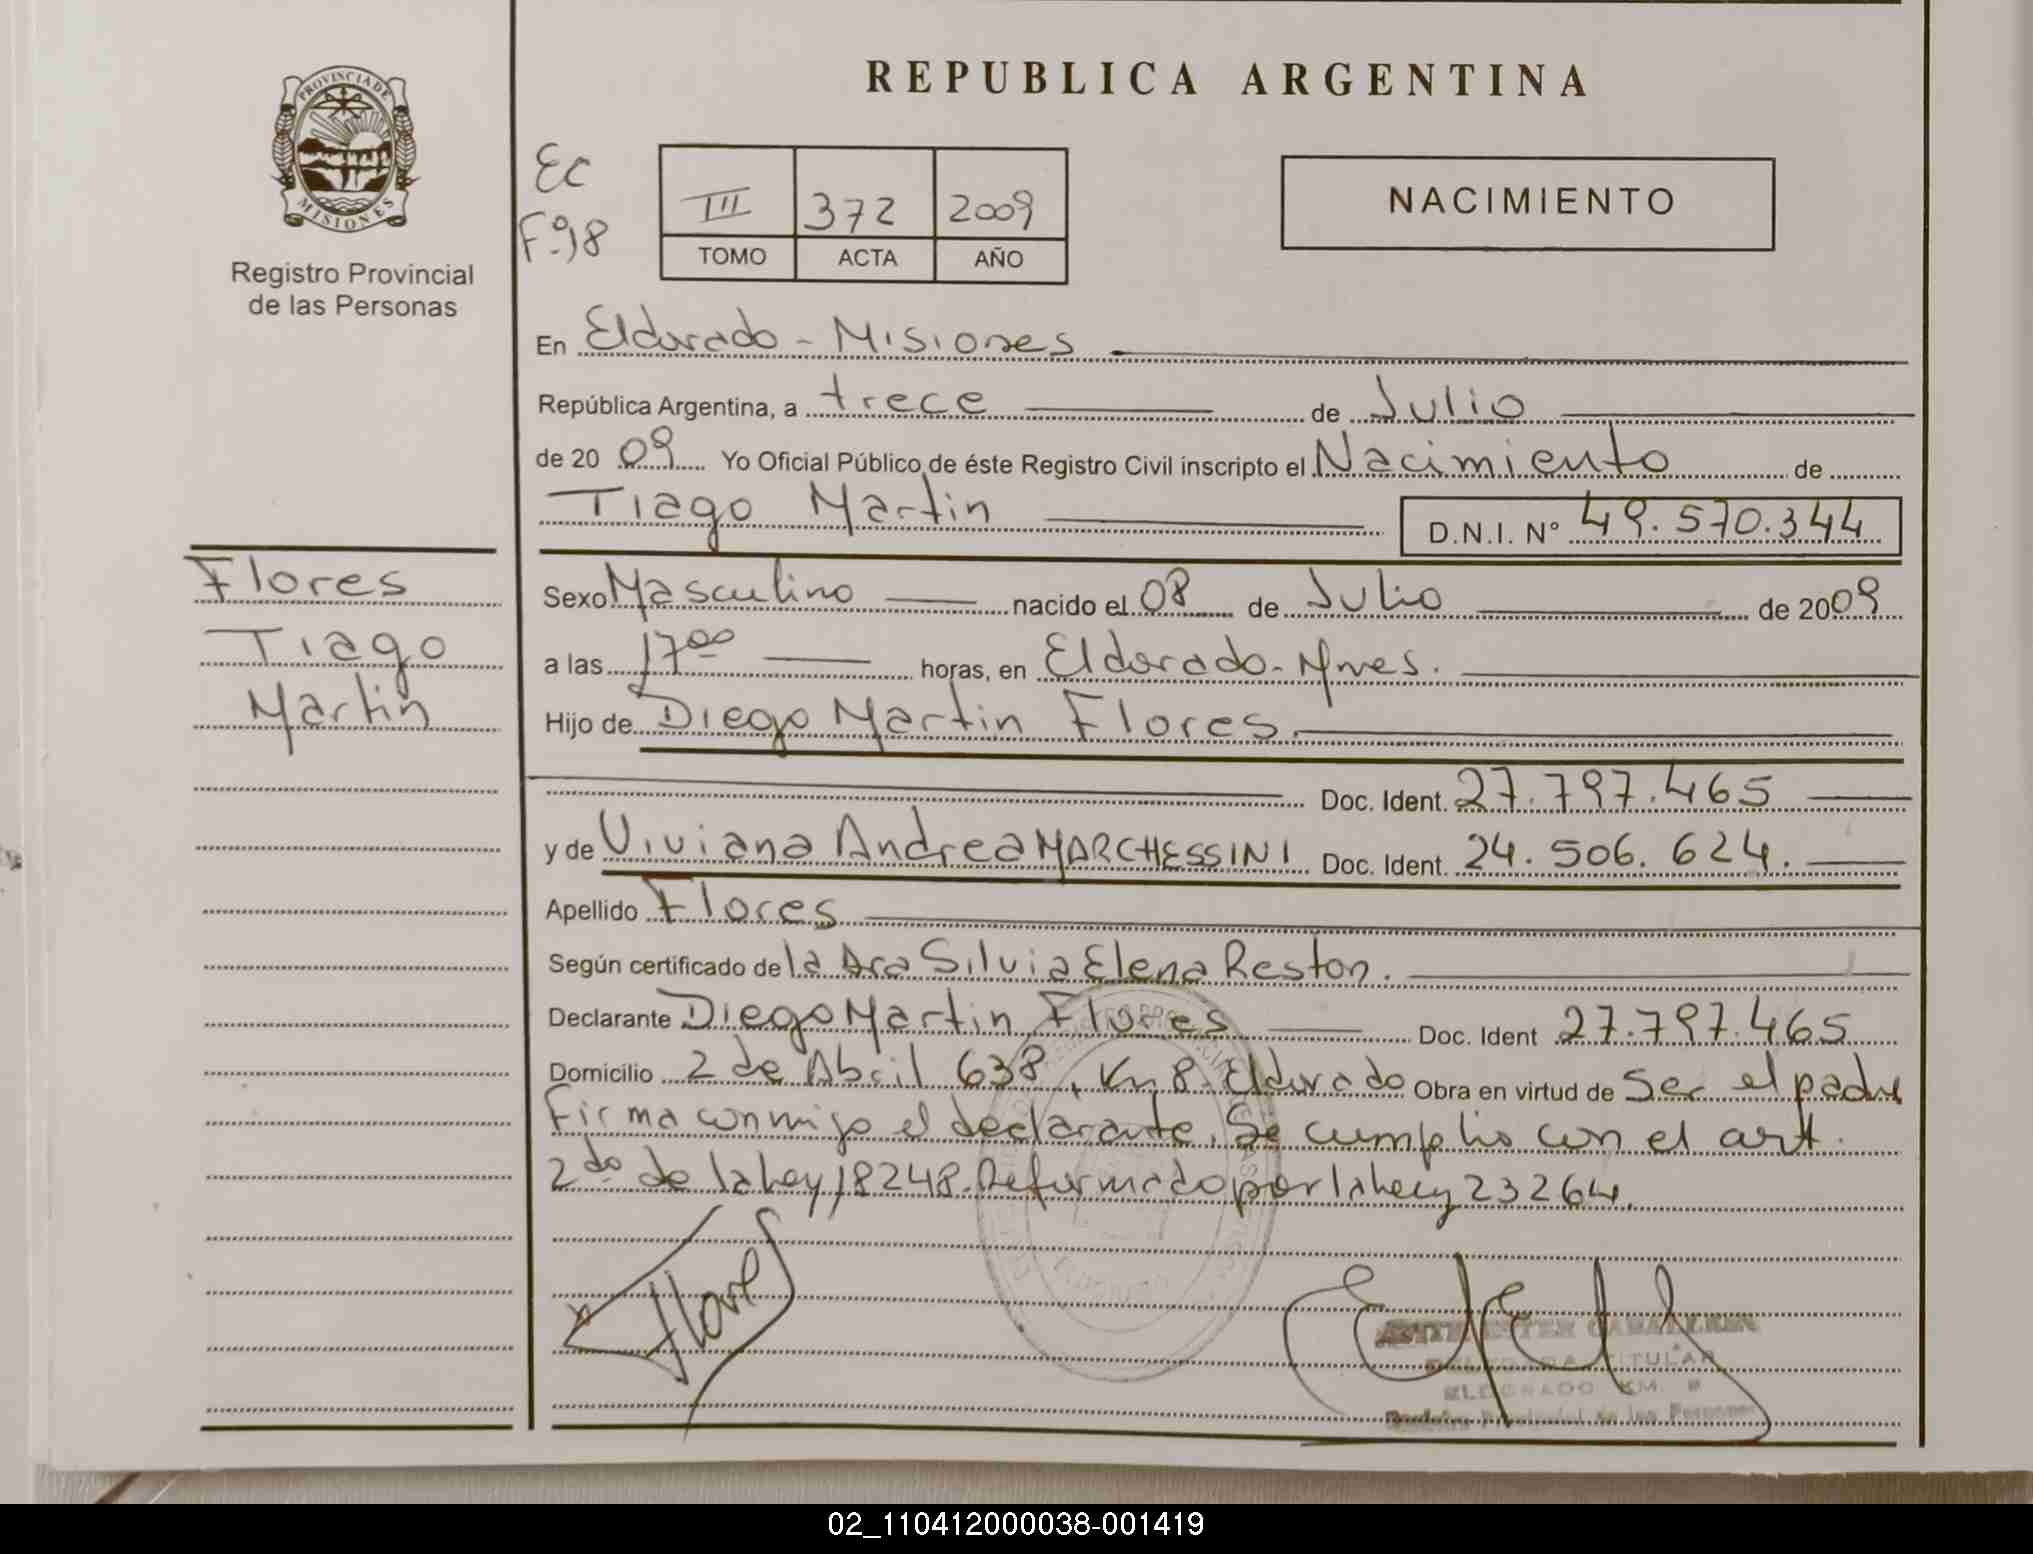 PROVINCIA DE
MISIONES
Registro Provincial
de las Personas
Flores
Tiago
Martin
REPUBLICA ARGENTINA
EC
Fº 98
III 372 2009
TOMO ACTA AÑO
NACIMIENTO
En Eldorado - Misiones
República Argentina, a trece de Julio
de 2009 Yo Oficial Público de éste Registro Civil inscripto el Nacimiento de
Tiago Martin D.N.I. Nº 49.570.344
Sexo Masculino nacido el 08 de Julio de 2009
a las 17⁰⁰ horas, en Eldorado - Mnes.
Hijo de Diego Martin Flores.
Doc. Ident. 27.797.465
y de Viviana Andrea MARCHESSINI Doc. Ident. 24.506.624.
Apellido Flores
Según certificado de la Dra Silvia Elena Reston.
Declarante Diego Martin Flores Doc. Ident 27.797.465
Domicilio 2 de Abril 638, Km 8 - Eldorado Obra en virtud de Ser el padre
Firma conmigo el declarante. Se cumplio con el art.
2do de la Ley 18248. Reformado por la Ley 23264.
Flores
TITULAR
ELDORADO KM. 8
Registro Provincial de las Personas
02_110412000038-001419